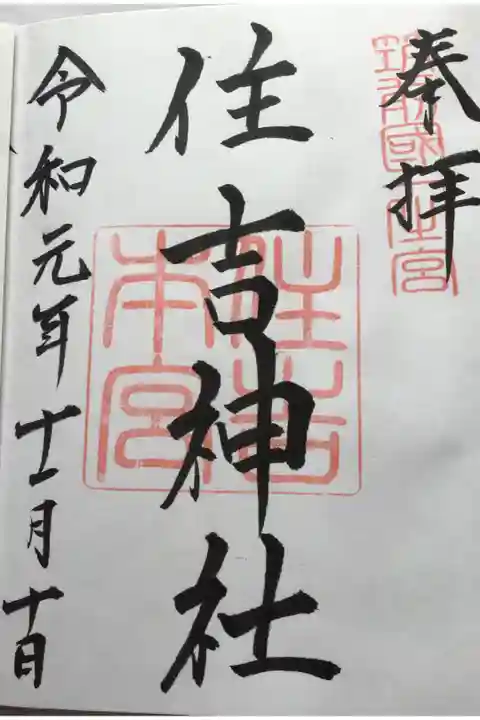 奉拝
筑前國一之宮
住吉神社
住吉
本宮
令和元年十一月十日